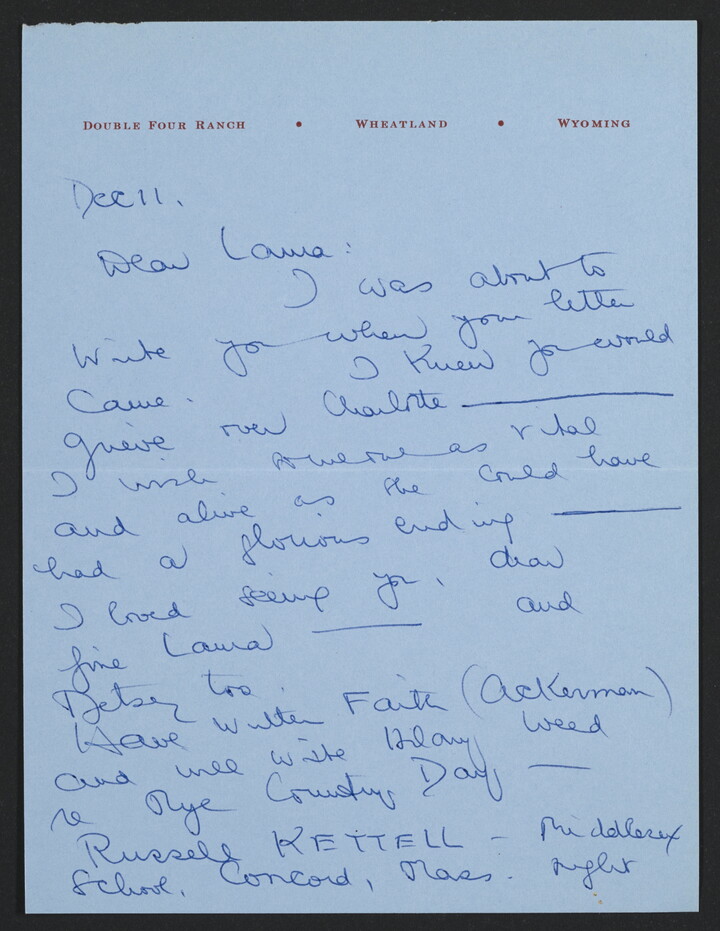 DOUBLE FOUR RANCH • WHEATLAND • WYOMING
Dec 11.
Dear Laura:
I was about to
write you when your letter
came. I knew you would
grieve over Charlotte —
I wish someone as vital
and alive as she could have
had a glorious ending —
I loved seeing you, dear
fine Laura — and
Betsey too.
Have written Faith (Ackerman)
and will write Hilary Weed
re Rye Country Day —
Russell KETTELL - Middlesex
School, Concord, Mass. might